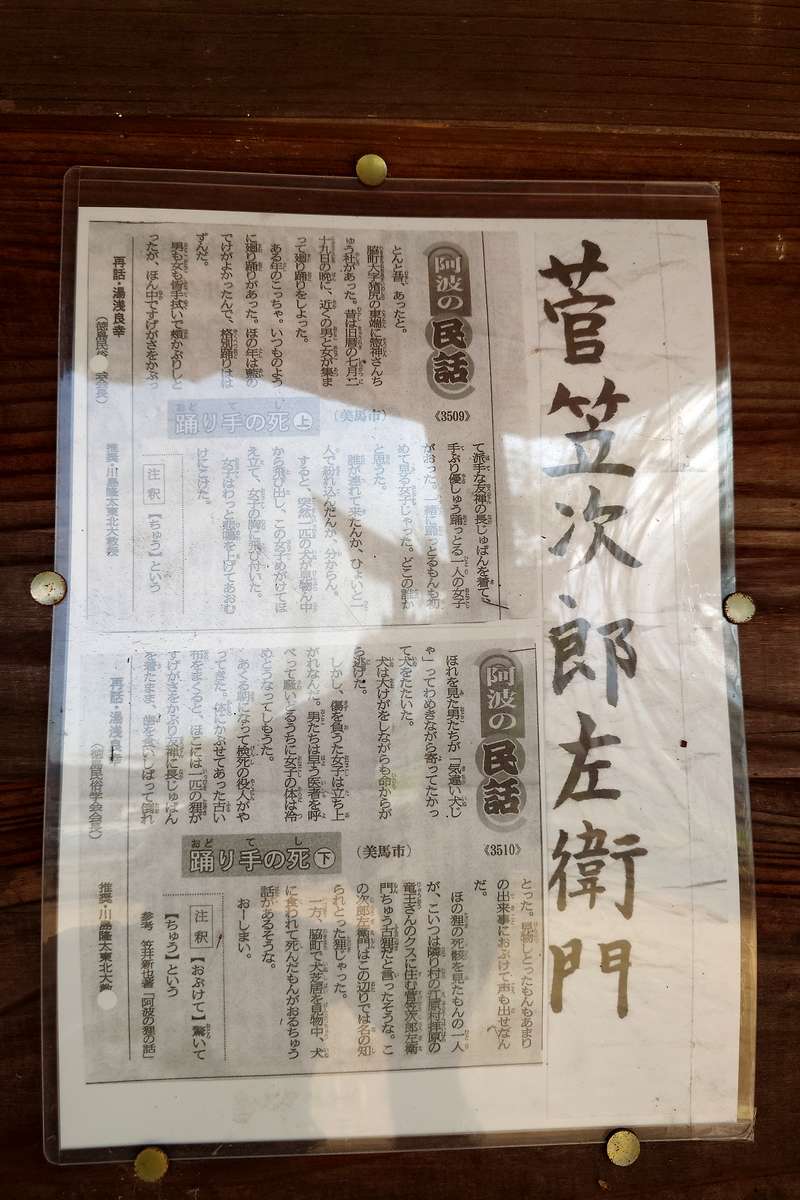 菅笠次郎左衛門
阿波の民話
《3509》
踊り手の死 上
(美馬市)
とんと昔、あったと。
脇町大字猪尻の東端に
ゅう社があった。昔は旧暦の七月二
十九日の晩に、近くの男と女が集ま
って廻り踊りをしよった。
ある年のこっちゃ。いつものよう
に廻り踊りがあった。ほの年は藍の
でけがよかったんで、格別踊りはは
ずんだ。
男も女も皆手拭いで頬かぶりしと
ったが、ほん中ですげがさをかぶっ
て派手な友禅の長じゅばんを着て、
手ぶり優しゅう踊っとる一人の女子
がおった。一緒に踊っとるもんも初
めて見る女子じゃった。どこの誰か
と思った。
誰が連れて来たんか、ひょいと一
人で紛れ込んだんか、分からん。
すると、突然一匹の犬が見物ん中
から飛び出し、この女子めがけてほ
え立て、女子の胸に飛び付いた。
女子はわっと悲鳴を上げてあおむ
けにこけた。
注釈
【ちゅう】という
再話・湯浅良幸
推奨・川島隆太東北大教授
阿波の民話
《3510》
踊り手の死 下
おど て し
(美馬市)
ほれを見た男たちが「気違い犬じ
ゃ」ってわめきながら寄ってたかっ
て犬をたたいた。
犬は大けがをしながらも命からが
ら逃げた。
しかし、傷を負うた女子は立ち上
がれなんだ。男たちは早う医者を呼
べって騒いどるうちに女子の体は冷
めとうなってしもうた。
あくる朝になって検死の役人がや
ってきた。体にかぶせてあった古い
布をまくると、ほこには一匹の狸が
すげがさをかぶり友禅に長じゅばん
を着たまま、歯を食いしばって倒れ
とった。見物しとったもんもあまり
の出来事におぶけて声も出せなん
だ。
ほの狸の死骸を見たもんの一人
が、こいつは隣り村の井原村拝原の
竜王さんのクスに住む菅笠次郎左衛
門ちゅう古狸だと言ったそうな。こ
の次郎左衛門はこの辺りでは名の知
られとった狸じゃった。
一方、脇町で犬芝居を見物中、犬
に食われて死んだもんがおるちゅう
話があるそうな。
おーしまい。
注釈
【おぶけて】驚いて
【ちゅう】という
参考 笠井新也著「阿波の狸の話」
再話・湯浅良幸
(徳島民俗学会会長)
推奨・川島隆太東北大教